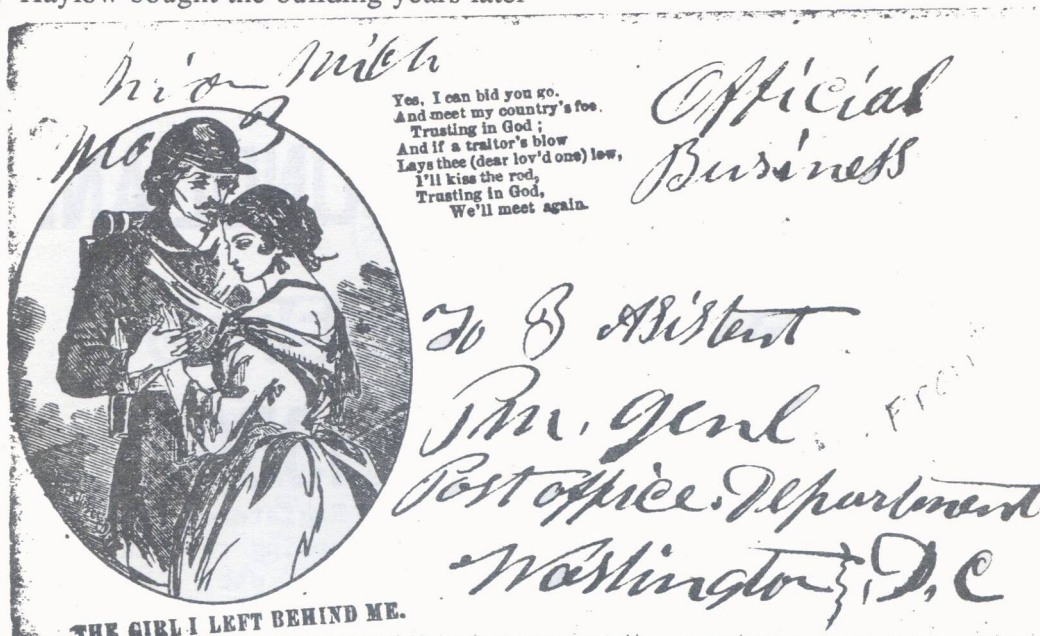 Haylow bought the building years later
Mich
Yes, I can bid you go.
And meet my country's foe.
Trusting in God ;
And if a traitor's blow
Lays thee (dear lov'd one) low,
I'll kiss the rod,
Trusting in God,
We'll meet again.
Official
Business
To 3 Asistent
P.m. Genl
Post office. Department
Washington, D, C
THE GIRL I LEFT BEHIND ME.